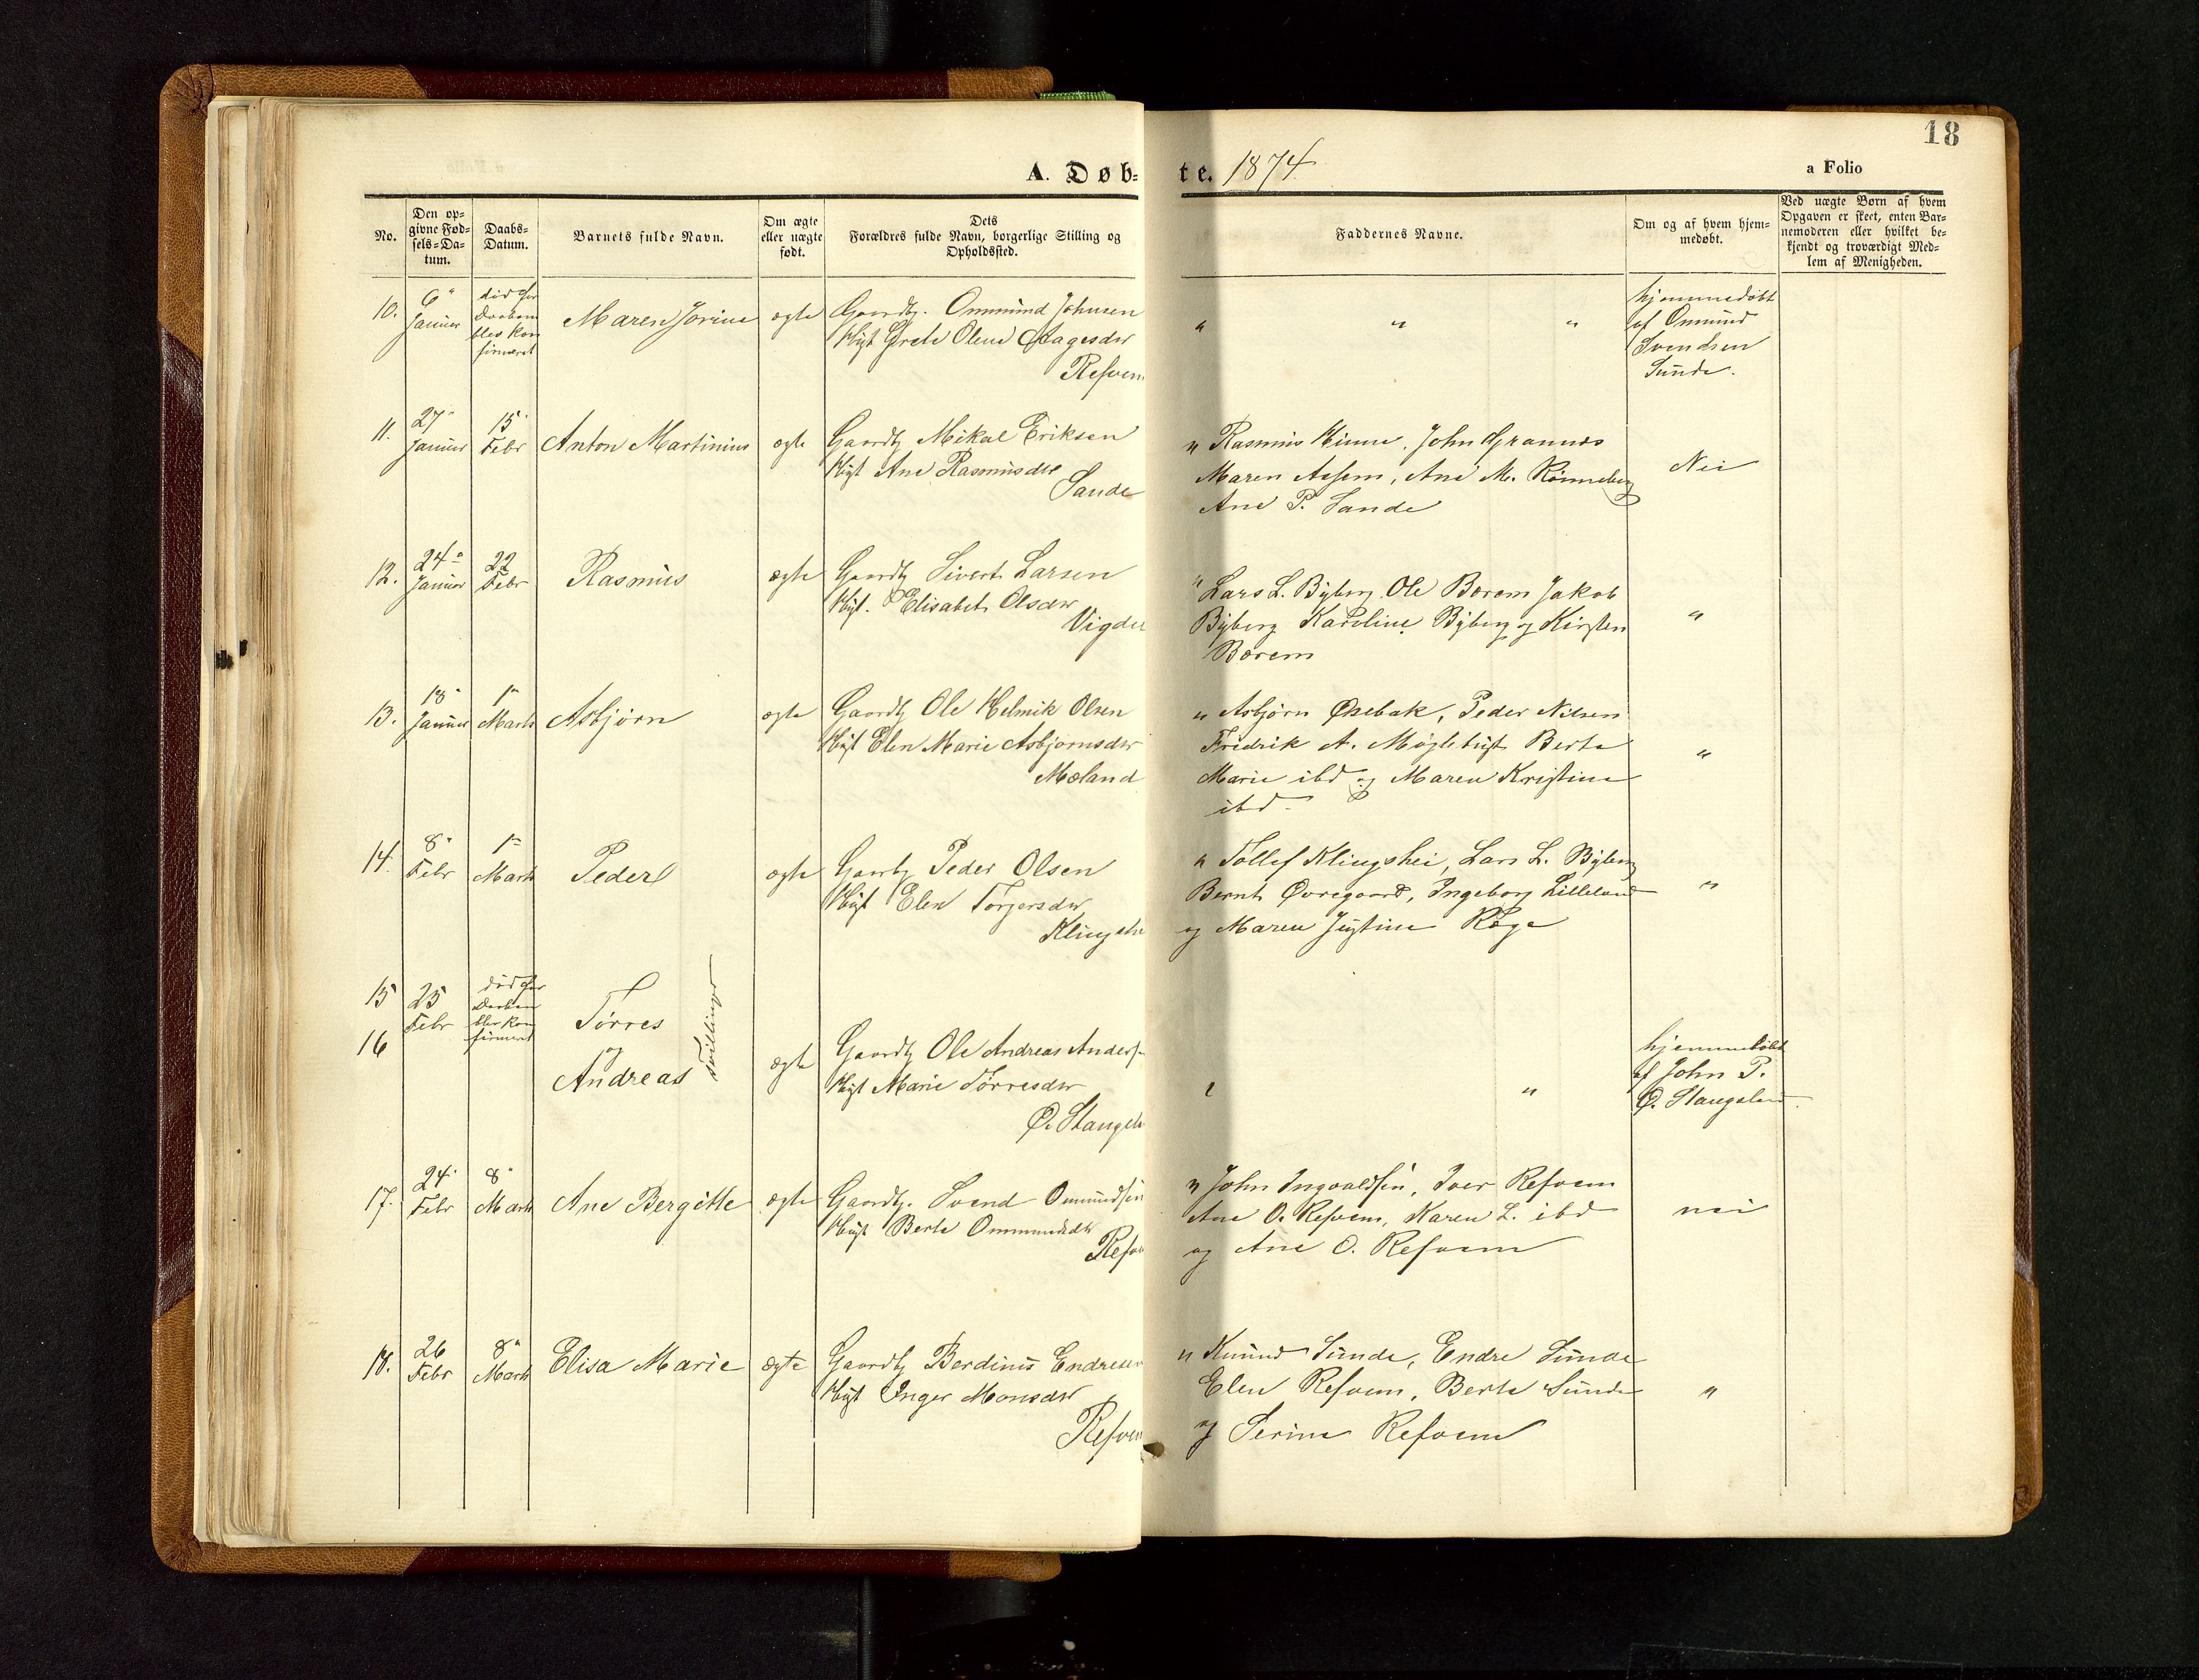 18
A. Døb-
te. 1874
a Folio
No.
Den op-
givne Fød-
sels-Da-
tum.
Daabs-
Datum.
Barnets fulde Navn.
Om ægte
eller uægte
født.
Dets
Forældres fulde Navn, borgerlige Stilling og
Opholdssted.
Faddernes Navne.
Om og af hvem hjem-
medøbt.
Ved uægte Børn af hvem
Opgaven er skeet, enten Bar-
nemoderen eller hvilket be-
kjendt og troværdigt Med-
lem af Menigheden.
10.
6"
Januar
død før
Daaben
blev kon
firmeret
Maren Jorine
ægte
Gaardbr. Ommund Johnsen
Hust Grete Oline Aagesdtr
Refvem
" " "
hjemmedøbt
af Omund
Svendsen
Sunde.
11.
27"
Januar
15"
Febr
Anton Martinius
ægte
Gaardbr Mikal Eriksen
Hust Ane Rasmusdtr
Sande
" Rasmus Hinna, John Grannes
Maren Assem, Ane M. Rønneberg
Ane P. Sande
Nei
12.
24"
Januar
22
Febr
Rasmus
ægte
Gaardbr Sivert Larsen
Hust. Elisabet Olsdtr
Vigdel
" Lars L. Byberg Ole Borem Jakob
Byberg Karoline Byberg og Kirsten
Borem
"
13.
18"
Januar
1"
Marts
Asbjørn
ægte
Gaardbr Ole Helmik Olsen
Hust Elen Marie Asbjørnsdtr
Moland
" Asbjørn Øxebak, Peder Nilsen
Fredrik A. Møgletust Berte
Marie ibd og Maren Kristine
ibd
"
14.
8"
Febr
1"
Marts
Peder
ægte
Gaardbr Peder Olsen
Hust Elen Torgersdtr
Klingshei
" Tollef Klingshei, Lars L. Byberg
Bernt Øvregaard, Ingeborg Lilleland
og Maren Justine Røge
"
15
16
25
Febr
død før
Daaben
blev kon
firmeret
Tørres
og
Andreas
tvillinger
ægte
Gaardbr Ole Andreas Anders-
Hust Marie Tørresdtr
Ø. Stangela
" "
hjemmedøbt
af John P.
Ø. Stangeland.
17.
24"
Febr
8"
Marts
Ane Bergitte
ægte
Gaardbr. Svend Omundsen
Hust Berte Ommundsdtr
Refve
" John Ingvaldsen, Iver Refvem
Ane O. Refvem, Karen L. ibd
og Ane O. Refvem
nei
18.
26
Febr
8"
Marts
Elisa Marie
ægte
Gaardbr Berdinus Endresen
Hust Inger Monsdtr
Refvem
" Knud Sunde, Endre Sunde
Elen Refvem, Berte Sunde
og Serine Refvem
"